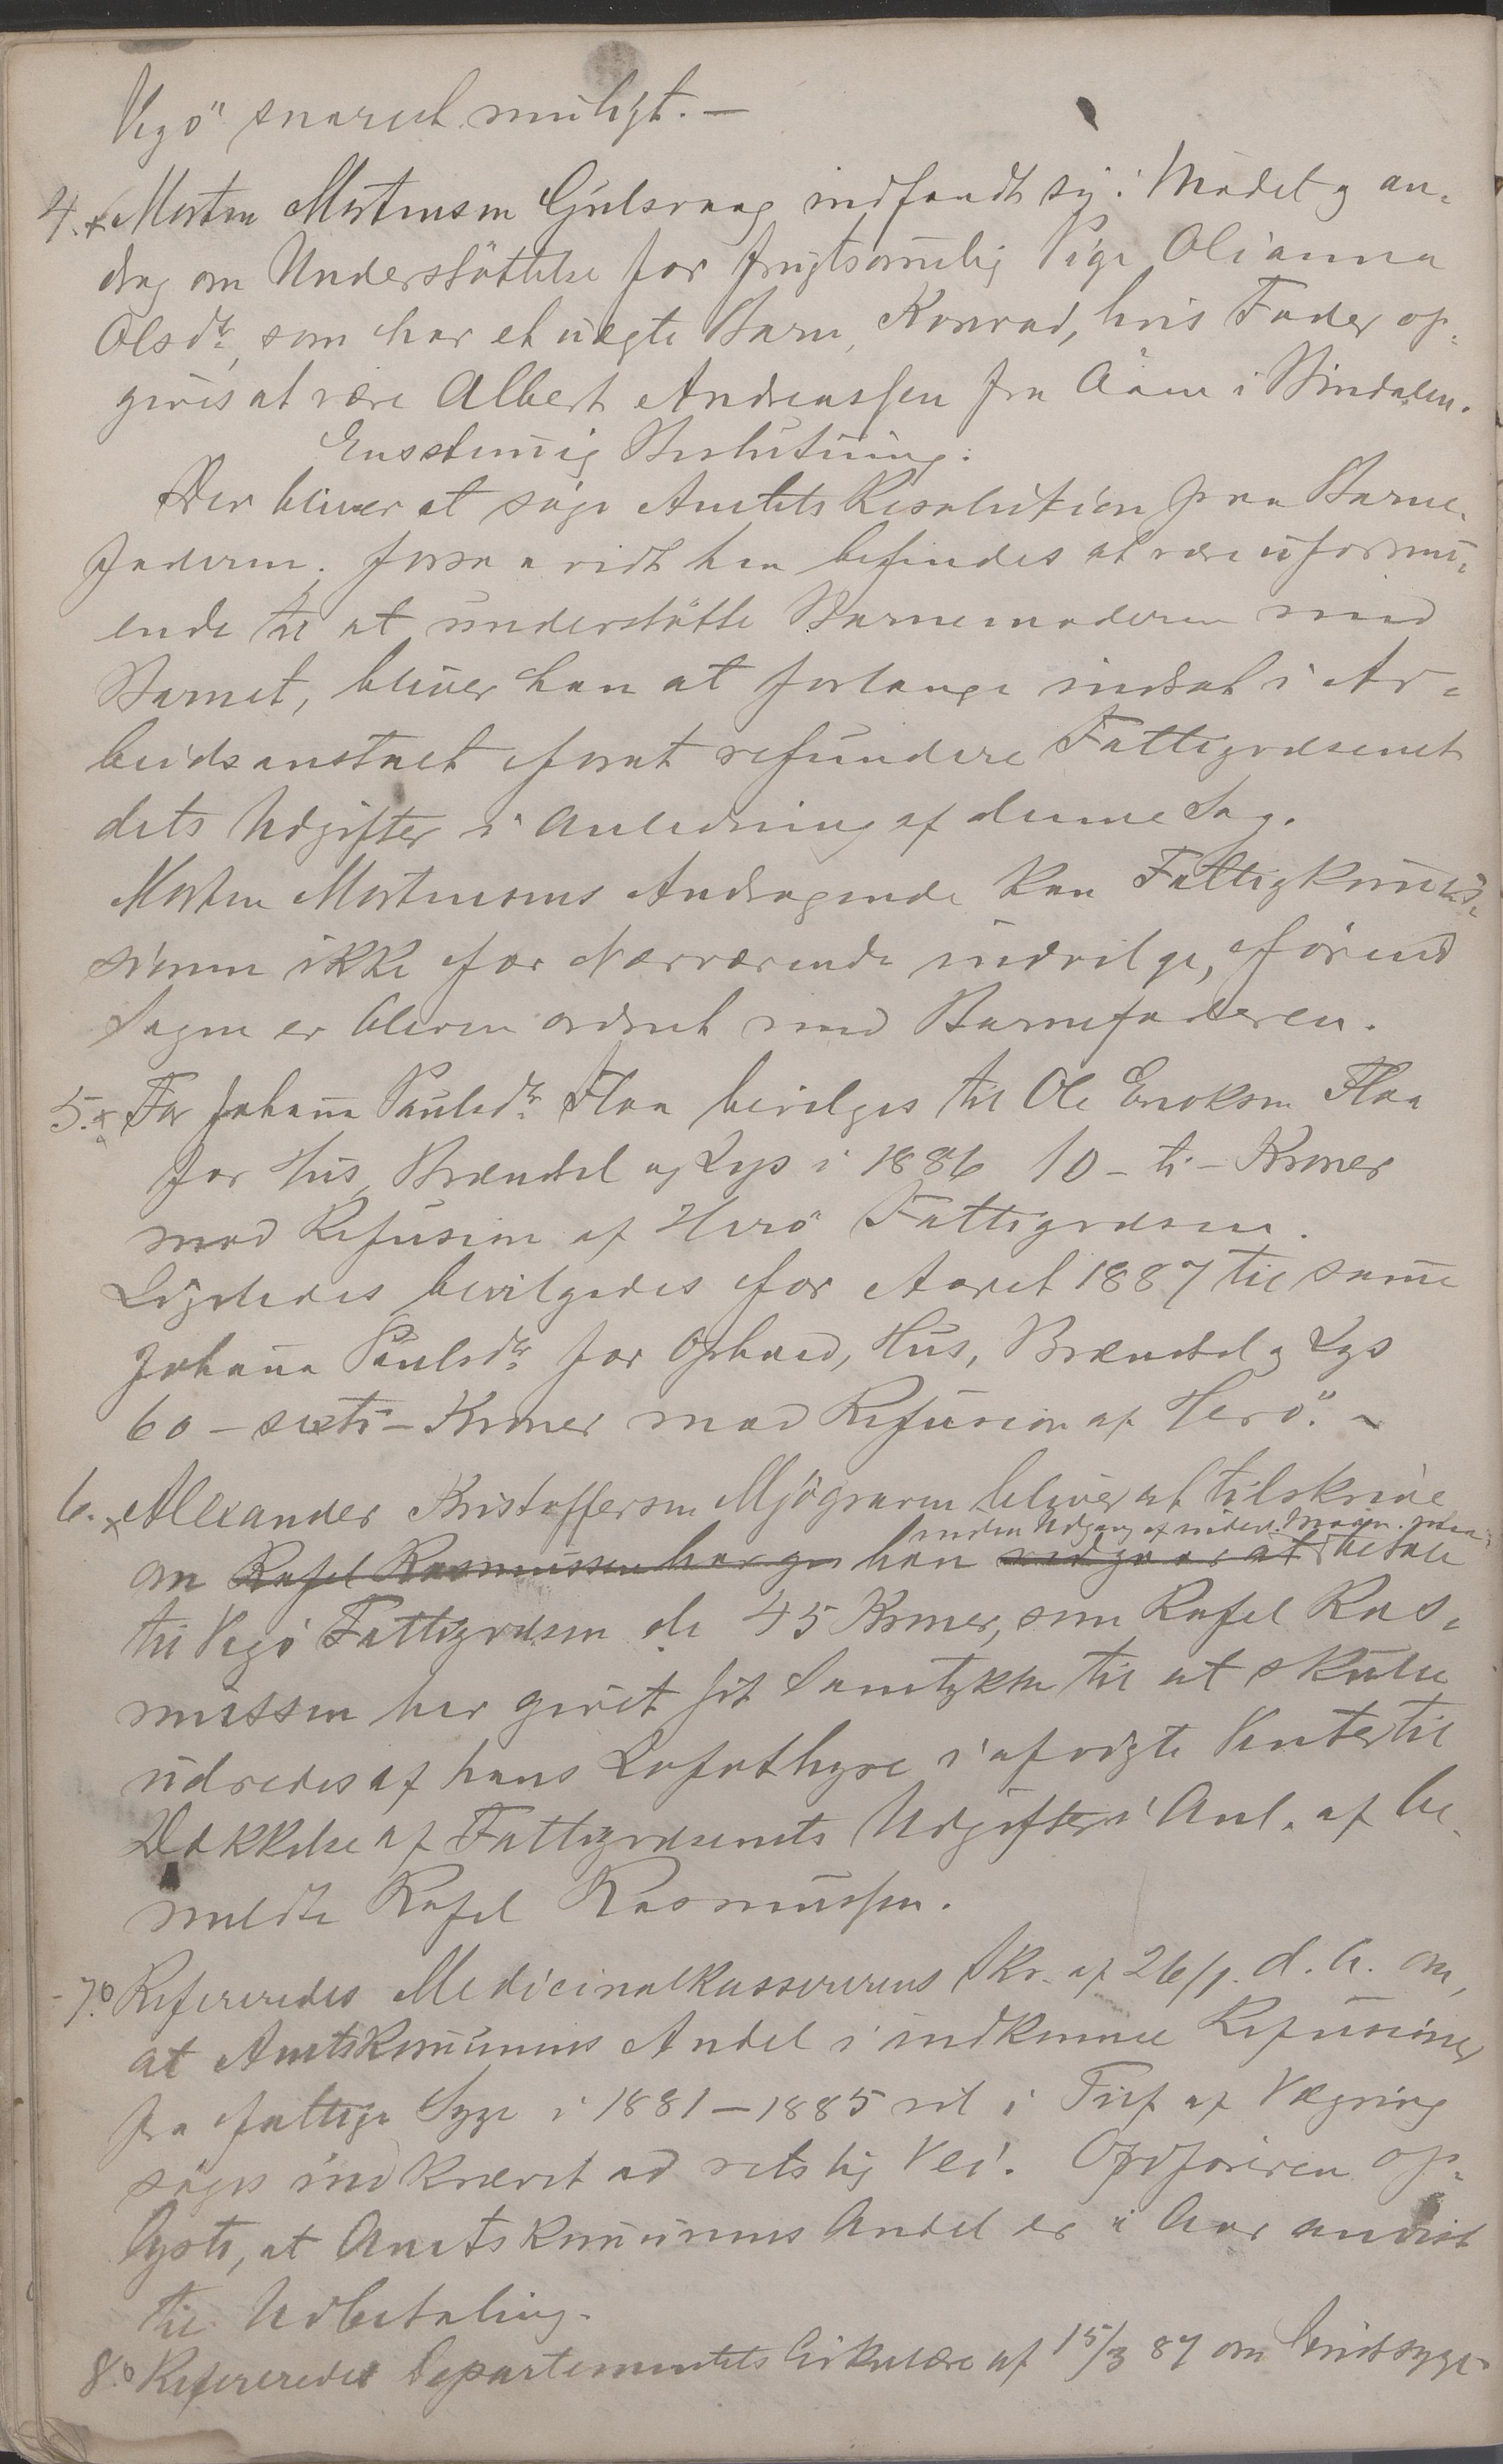 Vegö snarest muligt. —
4. x Morten Mortensen Gulsvaag indfandt sig i Mødet og an-
drog om Understöttelse for frugtsommelig Pige Olianna
Olsdtr, som har et uægte Barn, Konrad, hvis Fader op-
gives at være Albert Andreassen fra Aaen i Bindalen.
Enstemmig Beslutning:
Der bliver at søge Amtets Resolution paa Barne-
faderen. Forsaavidt han befindes at være uformu-
ende til at understötte Barnemoderen med
Barnet, bliver han at forlange indsat i Ar-
beidsanstalt forat refundere Fattigvæsenet
dets Udgifter i Anledning af denne Sag.
Morten Mortensens Andragende kan Fattigkommis-
sionen ikke for Nærværende indvilge, förend
Sagen er bleven ordnet med Barnefaderen.
5. x For Johanna Paulsdtr Flaa bevilges til Ole Enoksen Flaa
for Hus, Brændsel og Lys i 1886 10 - ti - Kroner
mod Refusion af Herö Fattigvæsen.
Ligeledes bevilgedes for Aaret 1887 til samme
Johanna Paulsdtr for Ophold, Hus, Brændsel og Lys
60 - sexti - Kroner mod Refusion af Herö. ~
6. x Alexander Kristoffersen Mjögraven bliver at tilskrive
inden Udgang af indev. Maan.
om Rafel Rasmussen har gi han vedgaar at betale
til Vegö Fattigvæsen de 45 Kroner, som Rafel Ras-
mussen har givet sit Samtykke til at skulle
udredes af hans Lofothyre i afvigte Vinter til
Dækkelse af Fattigvæsenets Udgifter i Anl. af be-
meldte Rafel Rasmussen.
7.o Refereredes Medicinalkassererens Skr. af 26/1 d. A. om,
at Amtskommunens Andel i indkomne Refusioner
fra fattige Syge i 1881 — 1885 vil i Tilf. af Vægring
søges inkrævet ad retslig Vei. Ordföreren op-
lyste, at Amtskommunens Andel er i Aar anvist
til Udbetaling.
8.o Refereredes Departementets Cirkulære af 15/3 87 om Sindssyge-